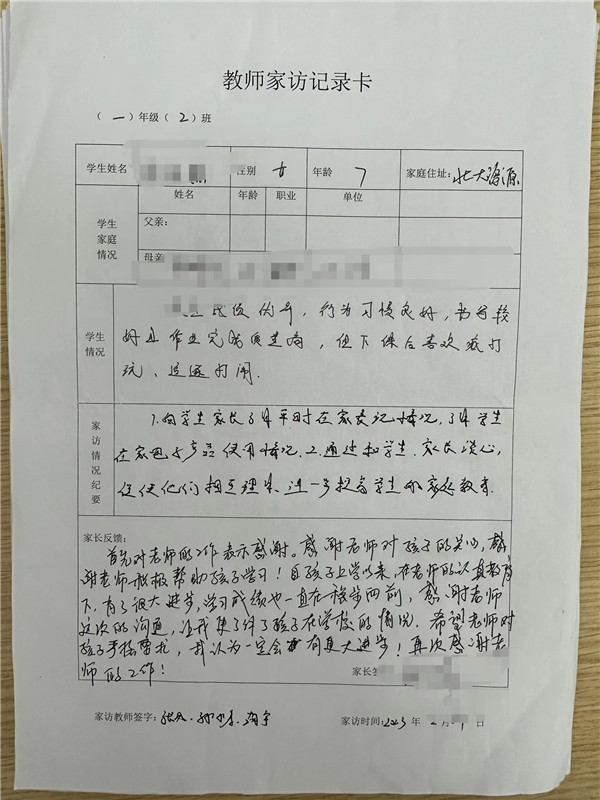 教师家访记录卡
（一）年级（2）班
学生姓名 性别 女 年龄 7 家庭住址: 北大资源
学生家庭情况 姓名 年龄 职业 单位
父亲:
母亲
学生情况
成绩优异，行为习惯良好，书写较
好且作业完成质量高，但下课后喜欢疯打
玩、追逐打闹.
家访情况纪要
1.向学生家长了解平时在家表现情况，了解学生
在家电子产品使用情况.2.通过和学生.家长谈心，
促使他们相互理解、进一步提高学生的家庭教育.
家长反馈:
首先对老师的工作表示感谢。感谢老师对孩子的关心，感
谢老师积极帮助孩子学习！自孩子上学以来，在老师的认真教育
下，有了很大进步，学习成绩也一直在稳步向前，感谢老师
这次的沟通，让我更了解了孩子在学校的情况。希望老师对
孩子严格要求，我认为一定会有更大进步！再次感谢老
师的工作！
家长签
家访教师签字:
家访时间: 2023 年 月 日